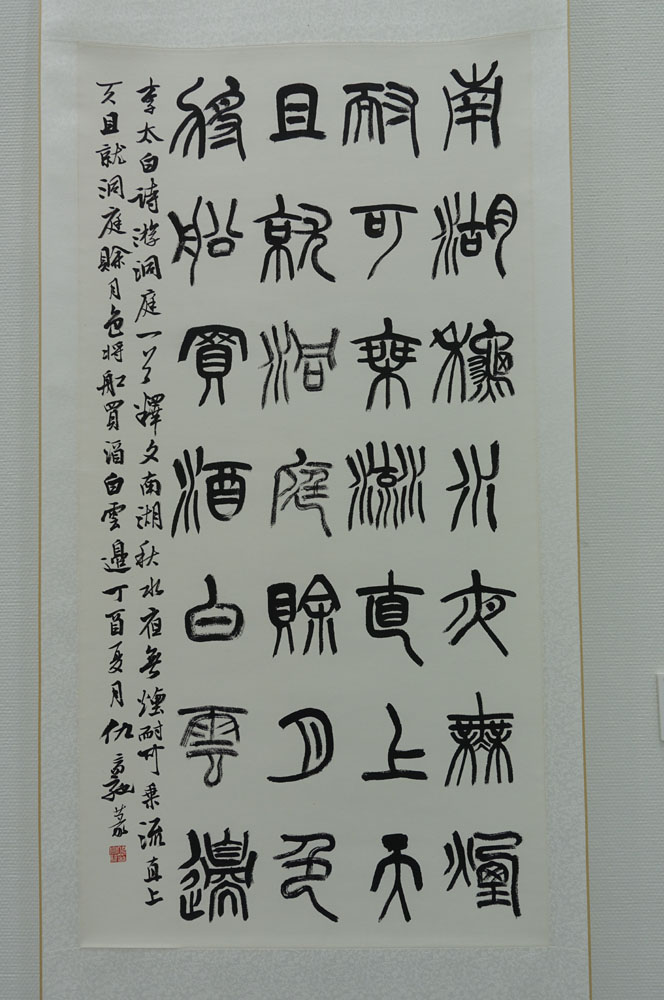 南湖秋水夜無煙
耐可乘流直上天
且就洞庭賖月色
將船買酒白雲邊
李太白詩游洞庭一首釋文南湖秋水夜無煙耐可乘流直上
天且就洞庭賖月色將船買酒白雲邊丁酉夏月仇高馳篆